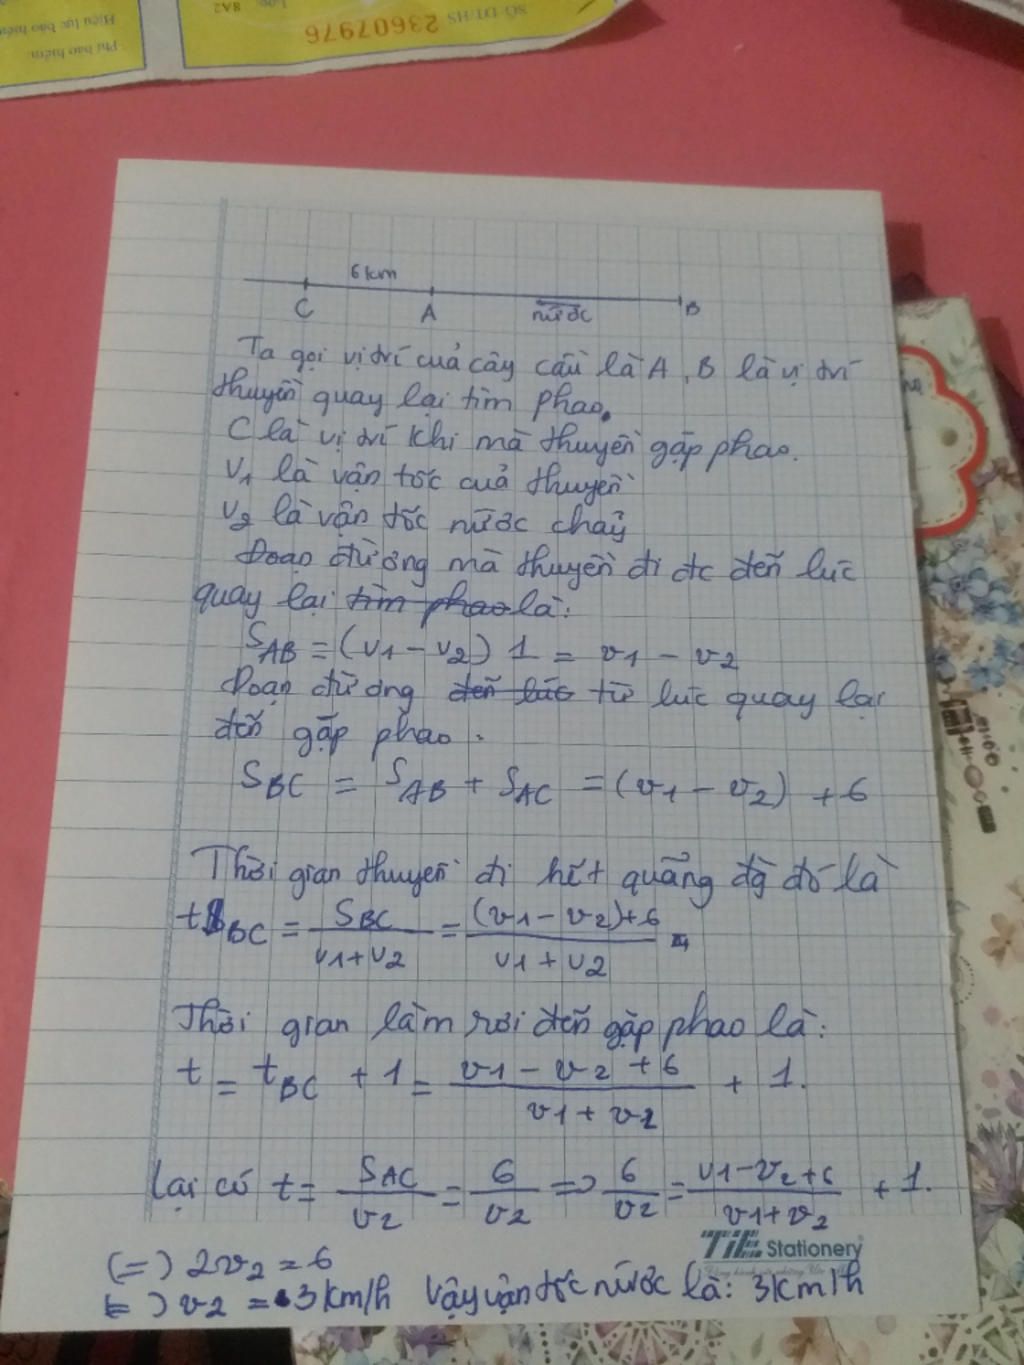 Phí bảo hiểm:
Hiệu lực bảo hiểm
Lớp
8A2
SỐ ĐT/HS 23607976
6 km
C A nước B
Ta gọi vị trí cuả cây cầu là A, B là vị trí
thuyền quay lại tìm phao.
C là vị trí khi mà thuyền gặp phao.
V1 là vận tốc cuả thuyền
V2 là vận tốc nước chảy
Đoạn đường mà thuyền đi đc đến lúc
quay lại tìm phao là:
SAB = (v1 - v2) 1 = v1 - v2
Đoạn đường đến lúc từ lúc quay lại
đến gặp phao.
SBC = SAB + SAC = (v1 - v2) + 6
Thời gian thuyền đi hết quãng đg đó là
tBC = SBC / v1+v2 = (v1-v2)+6 / v1+v2
Thời gian làm rơi đến gặp phao là:
t = tBC + 1 = v1 - v2 + 6 / v1+v2 + 1.
Lại có t = SAC / v2 = 6 / v2 => 6 / v2 = v1-v2+6 / v1+v2 + 1.
(=) 2v2 = 6
(=) v2 = 3 km/h Vậy vận tốc nước là: 3 km/h
TiE Stationery